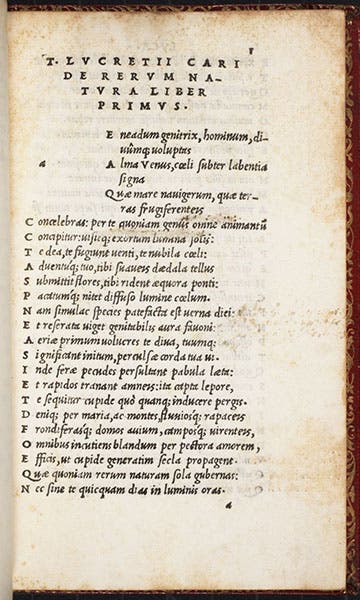 1
T. LVCRETII CARI
DE RERVM NA-
TVRA LIBER
PRIMVS.
E neadum genitrix, hominum, di-
uũmq; uoluptas
a A lma Venus, cœli subter labentia
signa
Q uæ mare nauigerum, quæ ter-
ras frugiferenteis
C oncelebras: per te quoniam genus omne animantũ
C oncipitur: uisitq; exortum lumina solis:
T e dea, te fugiunt uenti, te nubila cœli:
A duentuq; tuo, tibi suaueis dædala tellus
S ubmittit flores, tibi rident æquora ponti:
P acatumq; nitet diffuso lumine cœlum.
N am simulac species patefacta est uerna diei:
E t reserata uiget genitabilis aura fauoni:
A eriæ primum uolucres te diua, tuumq;
S ignificant initum, perculsæ corda tua ui.
I nde feræ pecudes persultant pabula læta:
E t rapidos tranant amneis: ita capta lepore,
T e sequitur cupide quò quanq; inducere pergis.
D eniq; per maria, ac montes, fluuiosq; rapaceis
F rondiferasq; domos auium, camposq; uirenteis,
O mnibus incutiens blandum per pectora amorem,
E fficis, ut cupide generatim secla propagent
Q uæ quoniam rerum naturam sola gubernas:
N ec sine te quicquam dias in luminis oras.
a